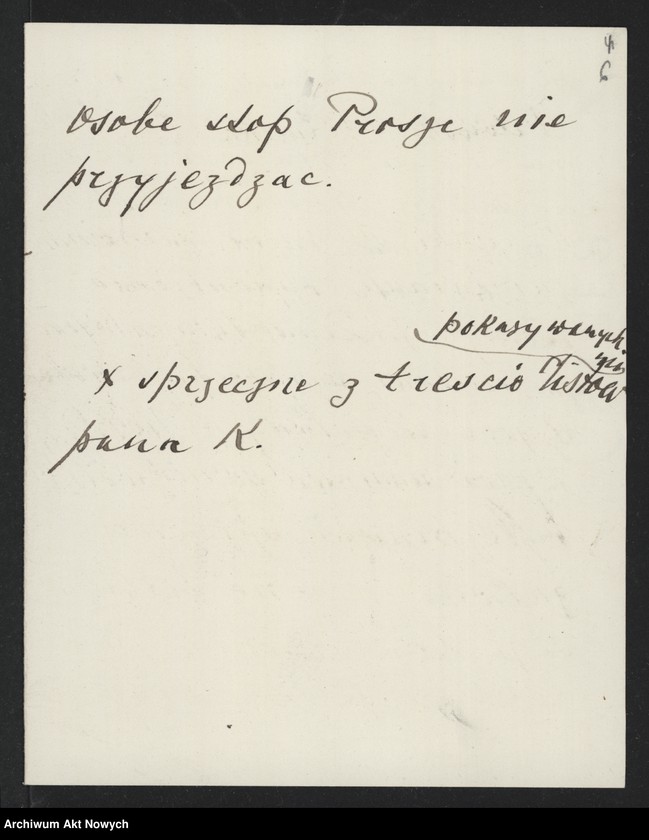 4
6
osobe stop Prosze nie
przyjezdzac.
pokazywanych
x sprzeczne z trescio listow
pana K.
Archiwum Akt Nowych